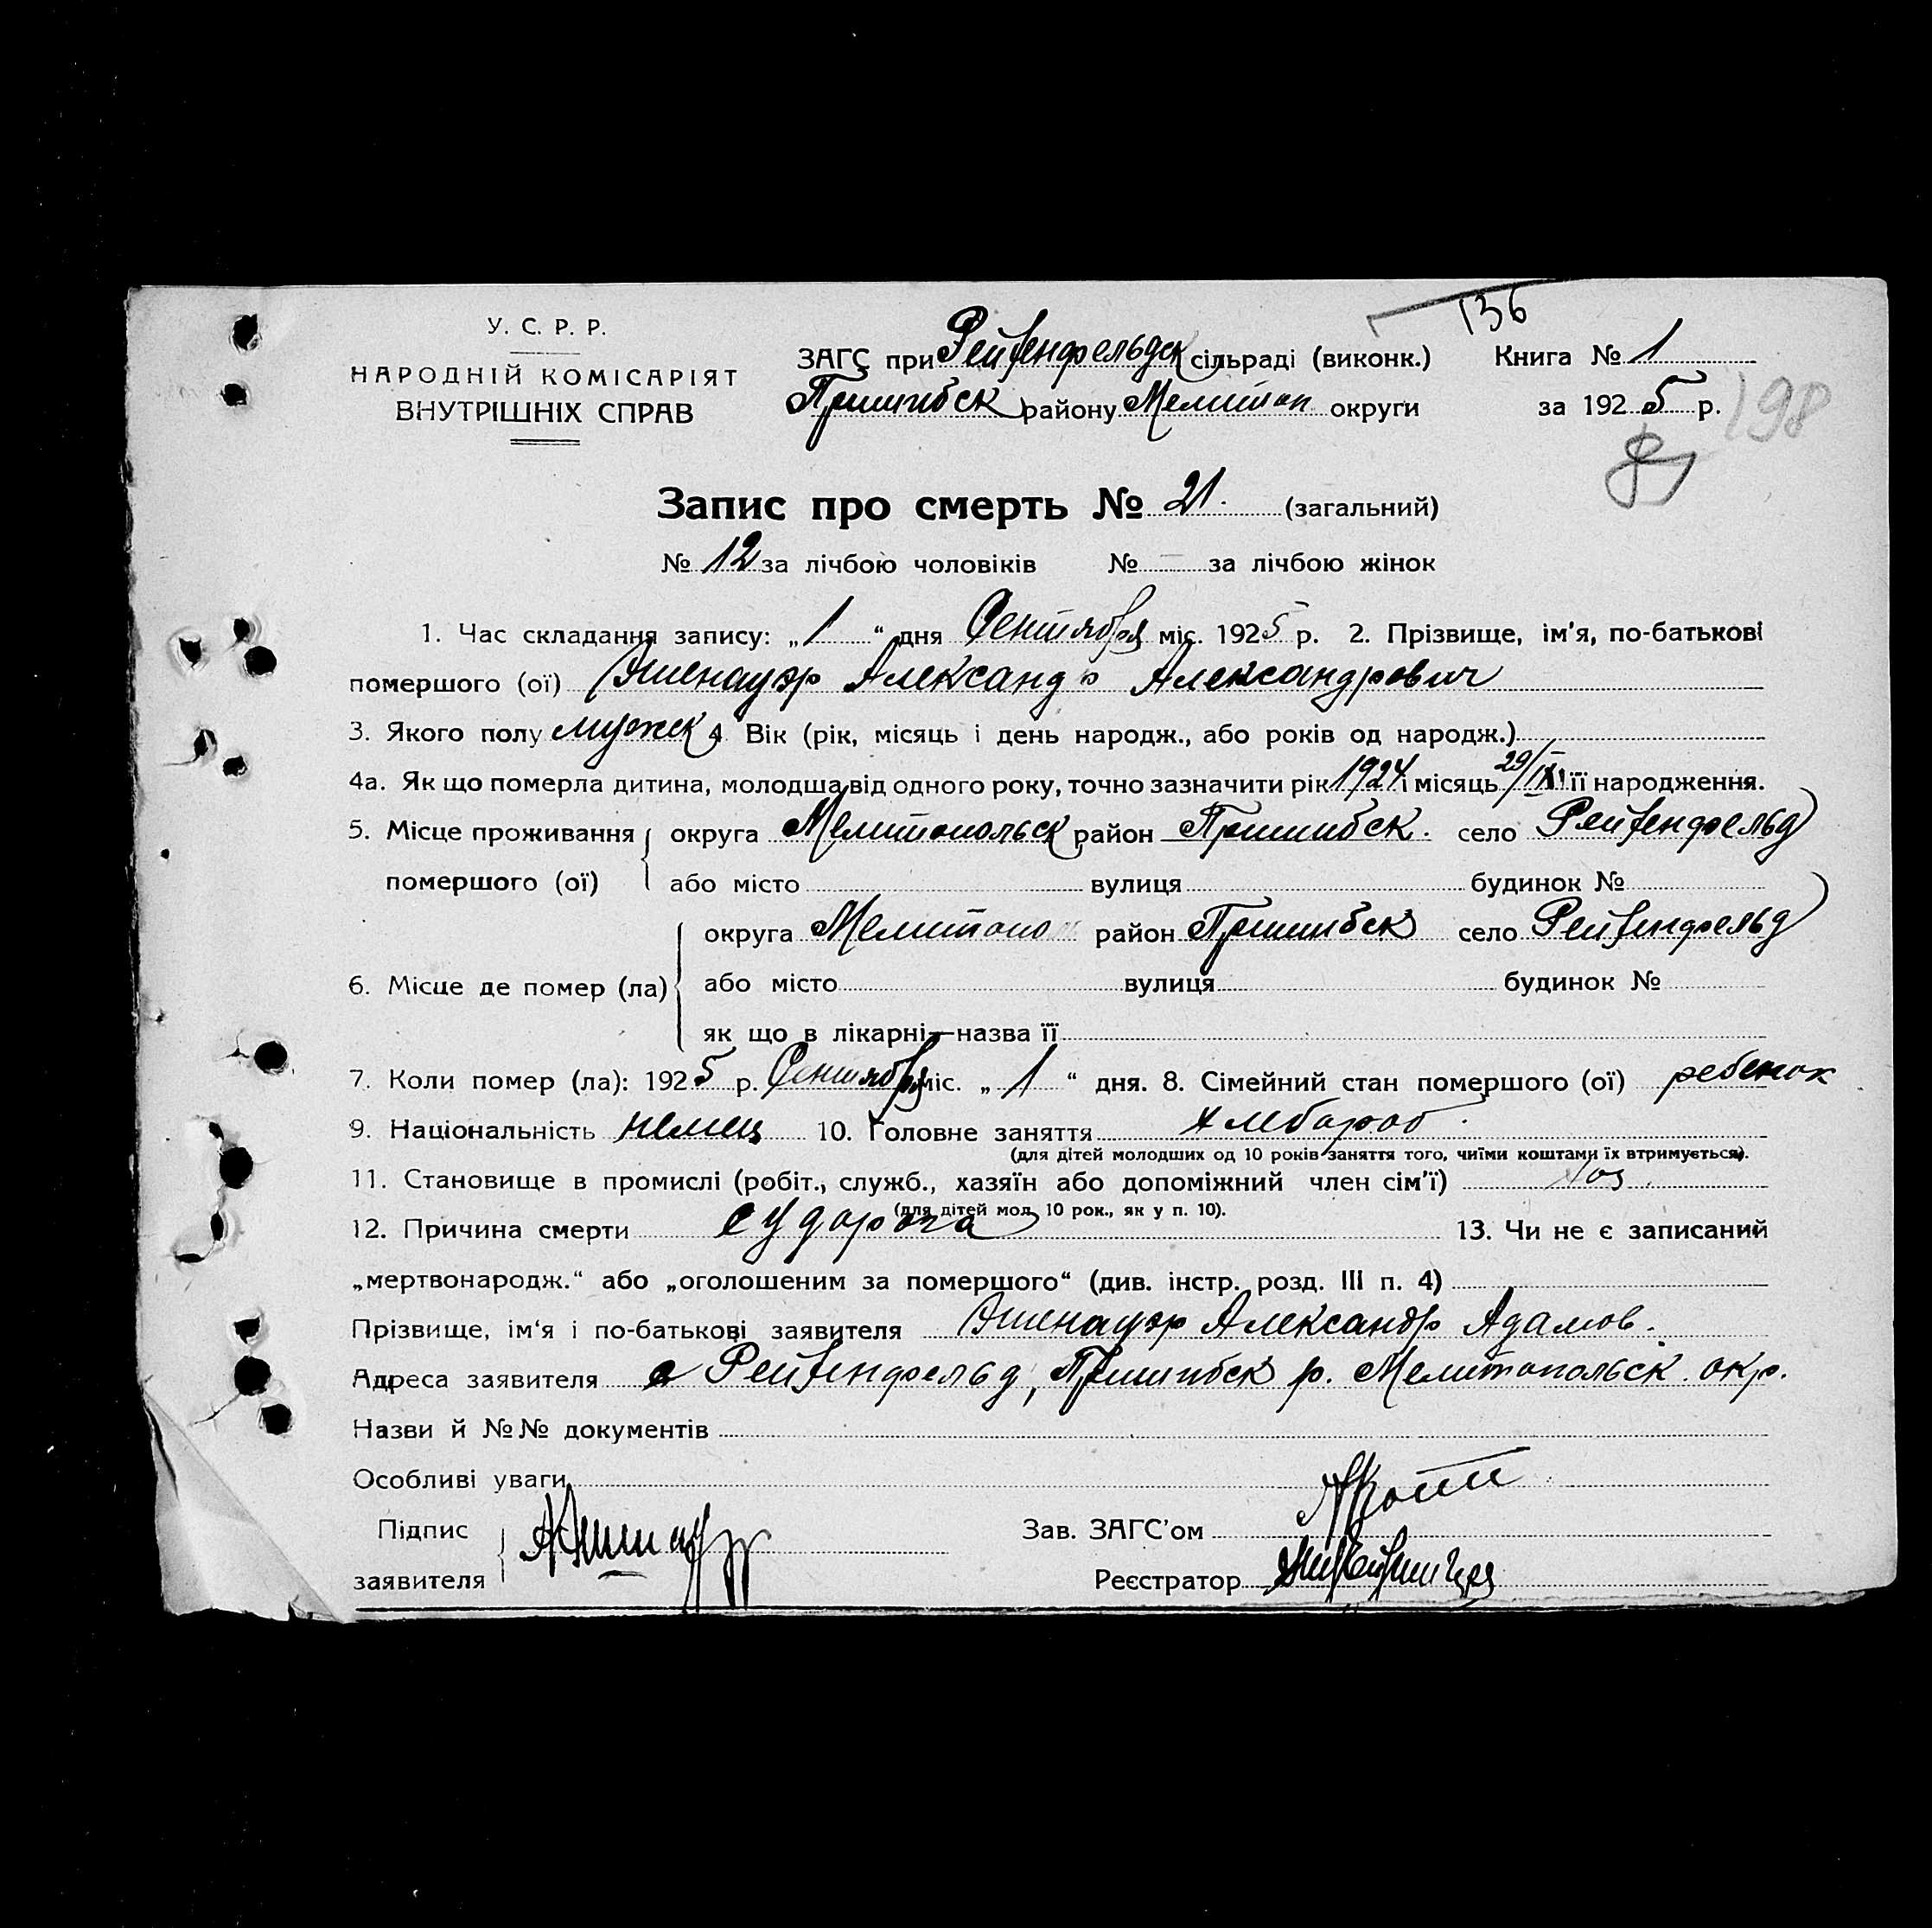 136
У. С. Р. Р.
НАРОДНІЙ КОМІСАРІЯТ
ВНУТРІШНІХ СПРАВ
ЗАГС при Рейхенфельдск сільраді (виконк.) Книга № 1
Пришибск району Мелитоп округи за 1925 р. 198
Запис про смерть № 21. (загальний)
№ 12 за лічбою чоловіків № — за лічбою жінок
1. Час складання запису: „1“ дня Сентября міс. 1925 р. 2. Прізвище, ім'я, по-батькові
помершого (ої) Эшенауэр Александр Александрович
3. Якого полу мужск 4. Вік (рік, місяць і день народж., або років од народж.)
4а. Як що померла дитина, молодша від одного року, точно зазначити рік 1924 і місяць 29/IX її народження.
5. Місце проживання округа Мелитопольск район Пришибск. село Рейхенфельд
помершого (ої) або місто вулиця будинок №
округа Мелитопо район Пришибск село Рейхенфельд
6. Місце де помер (ла) або місто вулиця будинок №
як що в лікарні—назва її
7. Коли помер (ла): 1925 р. Сентября міс. „1“ дня. 8. Сімейний стан помершого (ої) ребенок
9. Національність немец 10. Головне заняття хлебороб
(для дітей молодших од 10 років заняття того, чиїми коштами їх втримується).
11. Становище в промислі (робіт., служб., хазяїн або допоміжний член сім'ї) хоз
(для дітей мол. 10 рок., як у п. 10).
12. Причина смерти судорога 13. Чи не є записаний
„мертвонародж.“ або „оголошеним за помершого“ (див. інстр. розд. III п. 4)
Прізвище, ім'я і по-батькові заявителя Эшенауэр Александр Адамов.
Адреса заявителя с Рейхенфельд, Пришибск р. Мелитопольск. окр.
Назви й №№ документів
Особливі уваги
Підпис
заявителя
Зав. ЗАГС'ом
Реєстратор